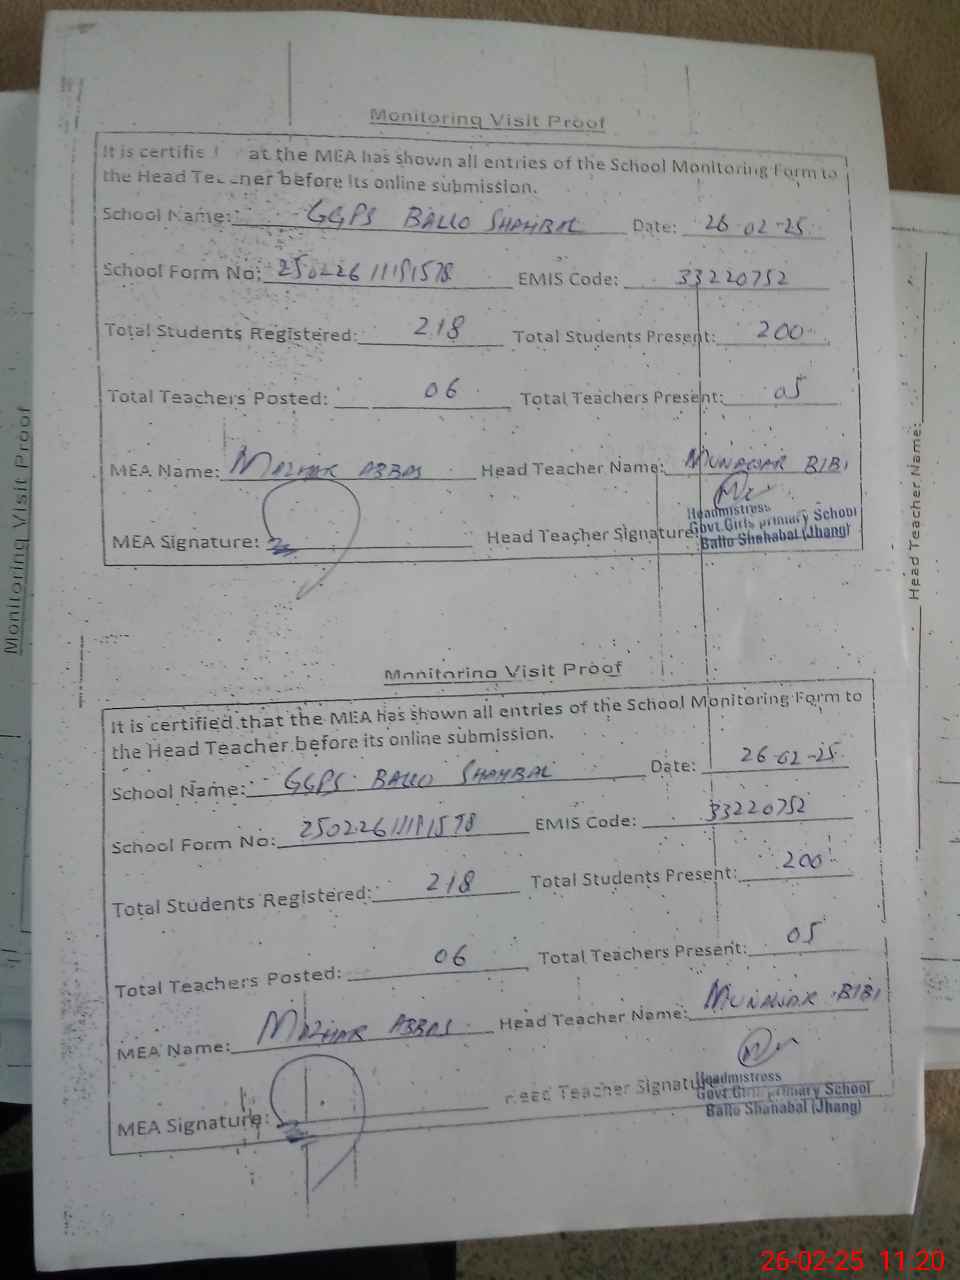 Monitoring Visit Proof
It is certifie at the MEA has shown all entries of the School Monitoring Form to
the Head Teacher before its online submission.
School Name: GGPS BALLO SHAHBAL Date: 26-02-25
School Form No: EMIS Code: 33220752
Total Students Registered: 218 Total Students Present: 200
Total Teachers Posted: 06 Total Teachers Present: 05
MEA Name: MAZHAR ABBAS Head Teacher Name: MUNAWAR BIBI
Headmistress
MEA Signature: Head Teacher Signature: Govt.Girls primary School
Ballo Shahabal (Jhang)
Monitoring Visit Proof
It is certified that the MEA has shown all entries of the School Monitoring Form to
the Head Teacher before its online submission.
School Name: GGPS BALLO SHAHBAL Date: 26-02-25
School Form No: EMIS Code: 33220752
Total Students Registered: 218 Total Students Present: 200
Total Teachers Posted: 06 Total Teachers Present: 05
MEA Name: MAZHAR ABBAS Head Teacher Name: MUNAWAR BIBI
Headmistress
MEA Signature: Head Teacher Signature Govt.Girls primary School
Ballo Shahabal (Jhang)
Monitoring Visit Proof
Head Teacher Name:
26-02-25 11:20